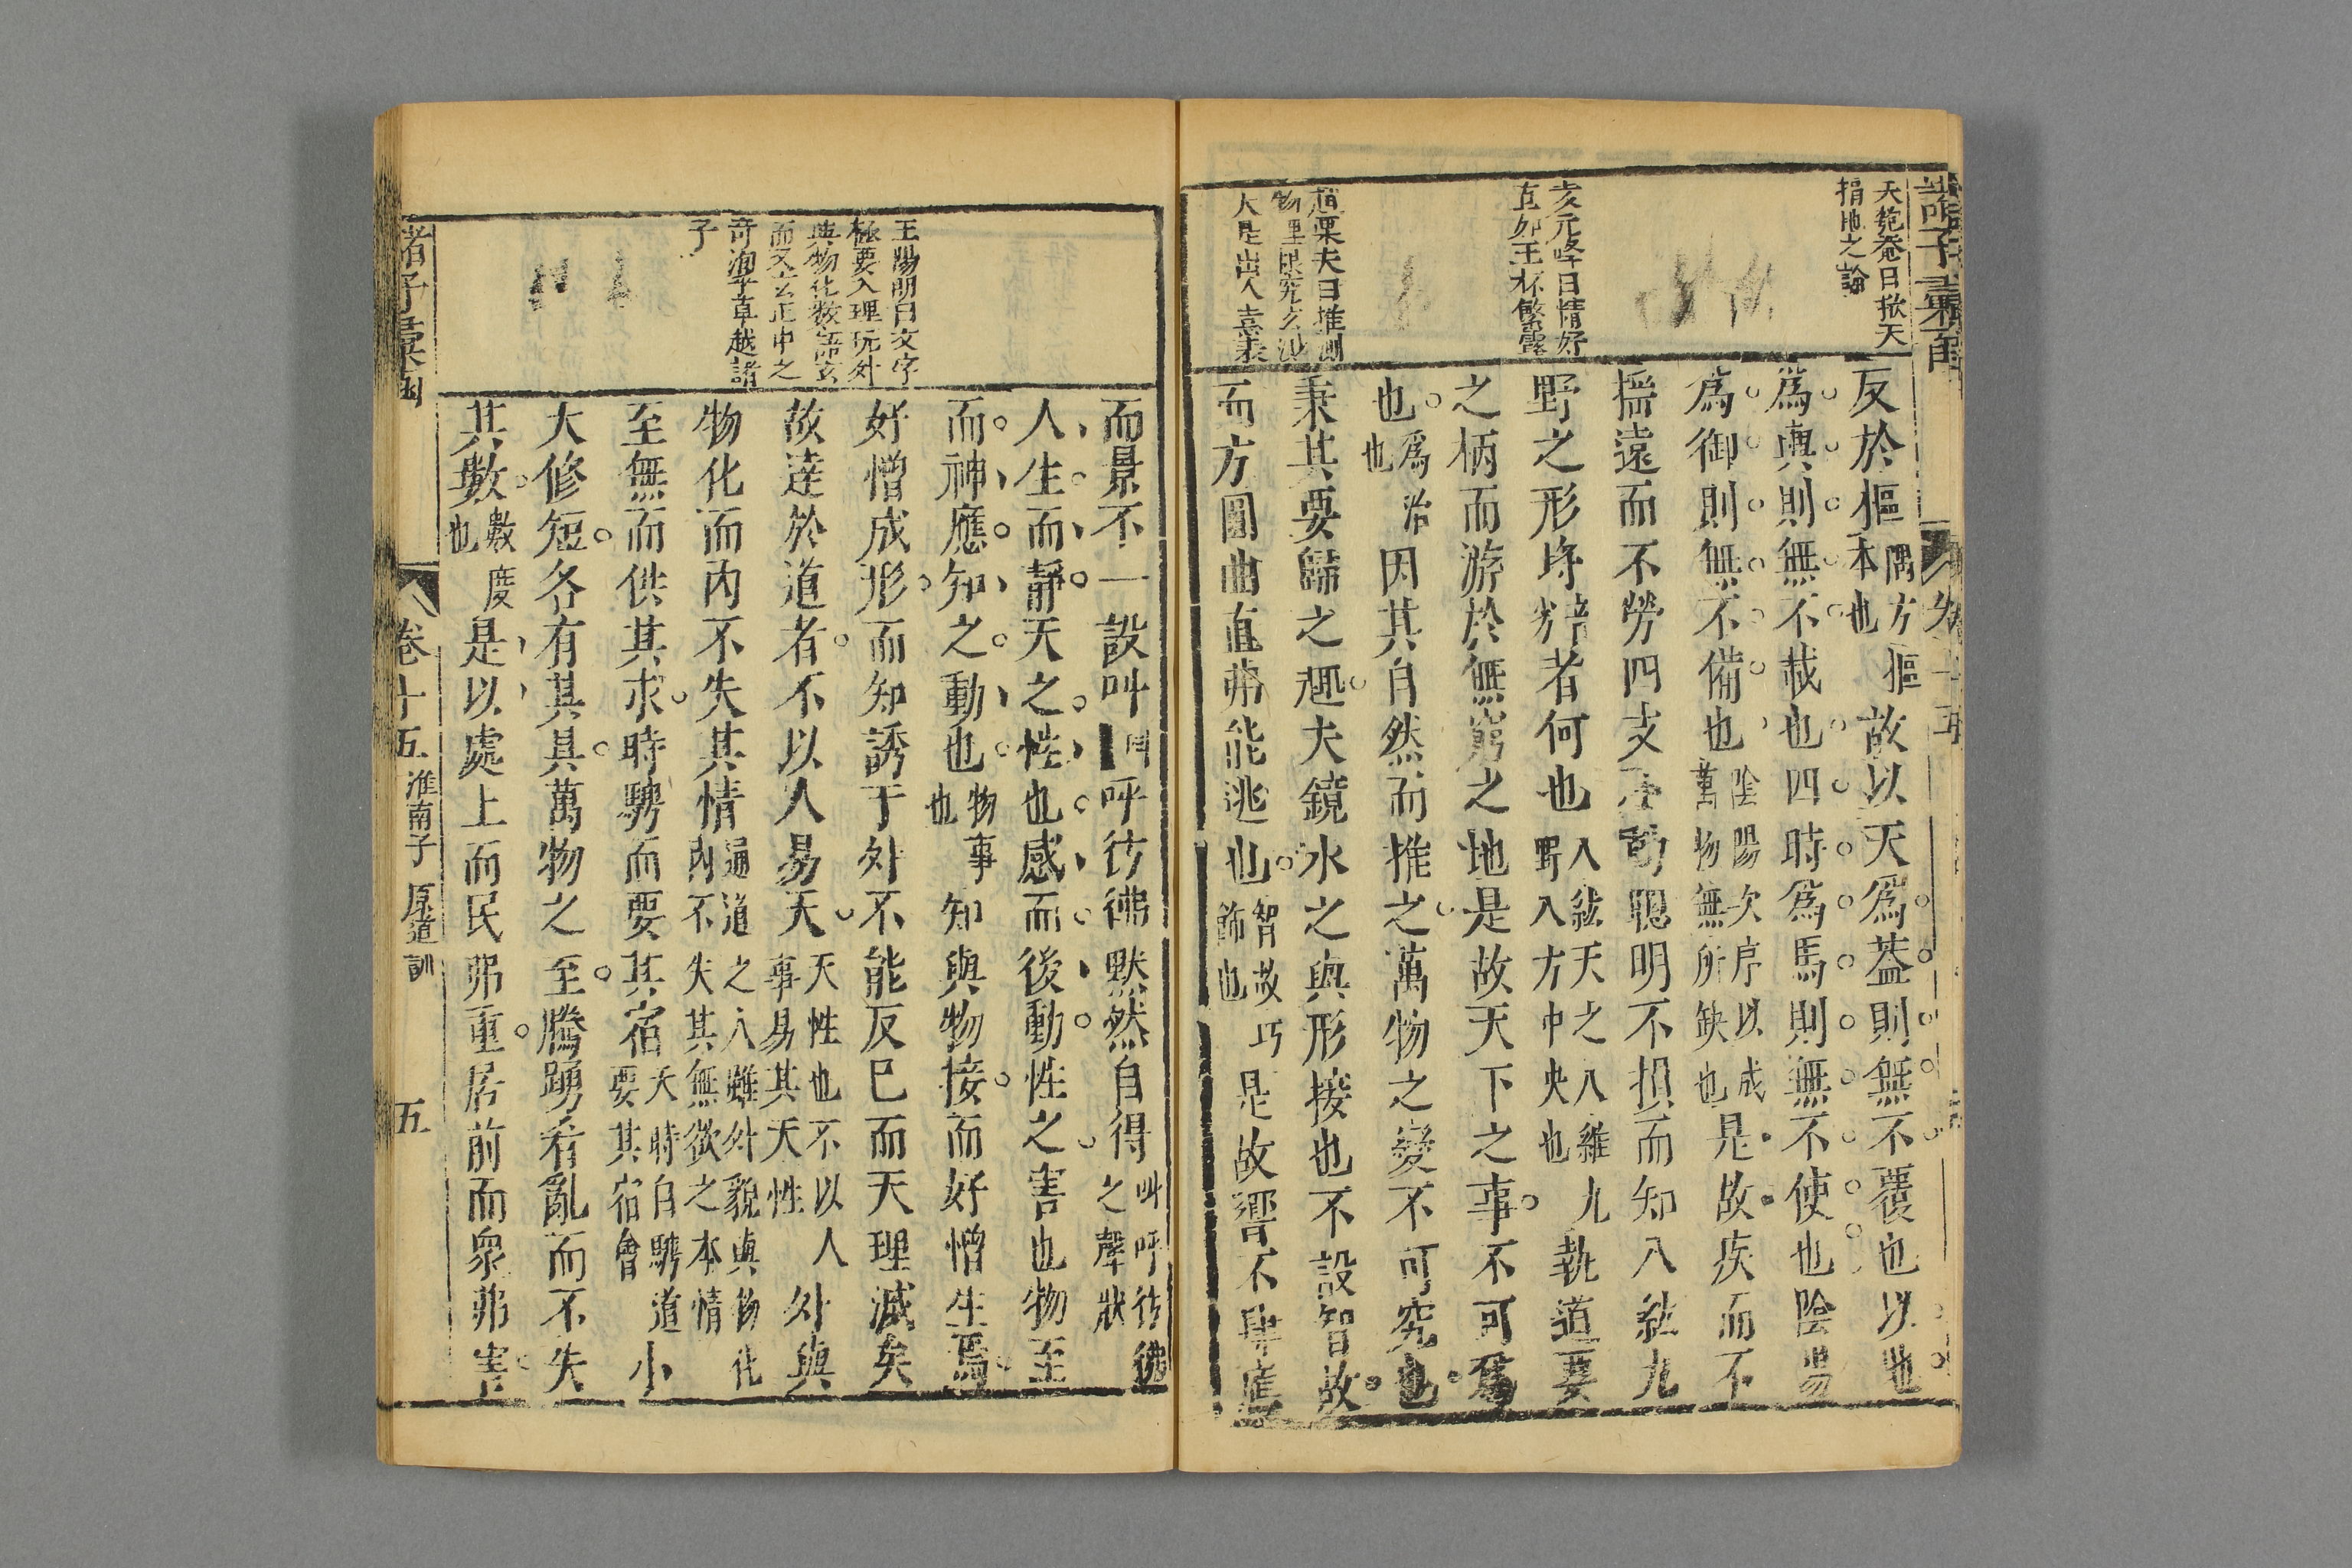 諸子彙函
卷十五
天乾菴曰掀天
揭地之論
反於樞隅方樞本也故以天爲蓋則無不覆也以地
爲輿則無不載也四時爲馬則無不使也陰陽
爲御則無不備也陰陽次序以成萬物無所缺也是故疾而不
搖遠而不勞四支不動聰明不損而知八紘九
野之形埒者何也八紘天之八維九野八方中央也執道要
之柄而游於無窮之地是故天下之事不可爲
也爲治也因其自然而推之萬物之變不可究也
秉其要歸之趣夫鏡水之與形接也不設智故
而方圓曲直弗能逃也智故巧飾也是故響不肆應
元峰曰情好
直如玉杯繁露
趙栗夫曰推測
物理根究玄
大是出人意表
而景不一設叫呼彷彿黙然自得叫呼彷彿之聲狀
人生而靜天之性也感而後動性之害也物至
而神應知之動也物事也知與物接而好憎生焉
好憎成形而知誘于外不能反已而天理滅矣
故達於道者不以人易天天性也不以人事易其天性外與
物化而内不失其情通道之人雖外貌與物化内不失其無欲之本情
至無而供其求時騁而要其宿天時自騁道要其宿會小
大修短各有其具萬物之至騰踴肴亂而不失
其數數度也是以處上而民弗重居前而衆弗害
王陽明曰文字
極要入理玩外
與物化數語玄
而又玄正中之
奇洵乎卓越諸
子
諸子彙函
卷十五
淮南子 原道訓
五